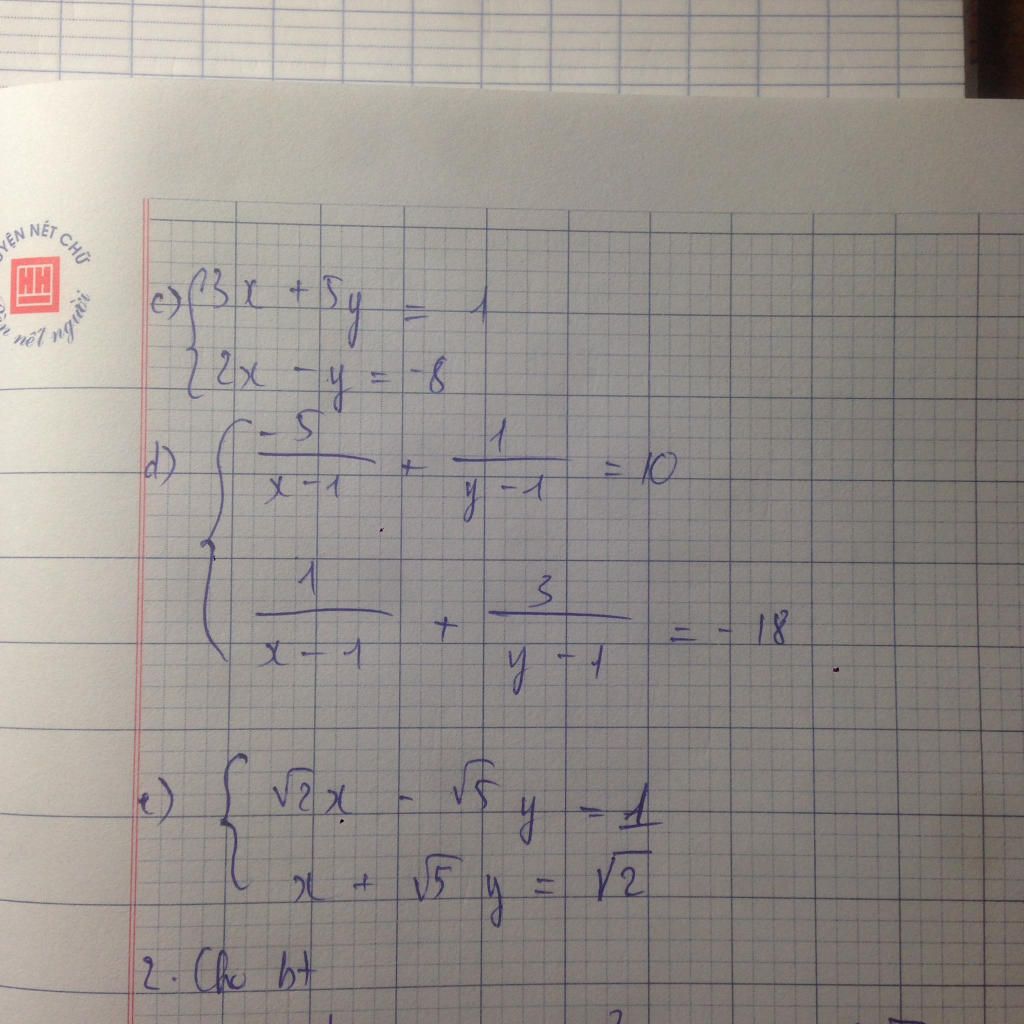 YỆN NẾT CHỮ
nết người
c) { 3x + 5y = 1
2x - y = -8
d) { -5/(x-1) + 1/(y-1) = 10
1/(x-1) + 3/(y-1) = -18
e) { √2x - √5y = 1
x + √5y = √2
2. Cho bt